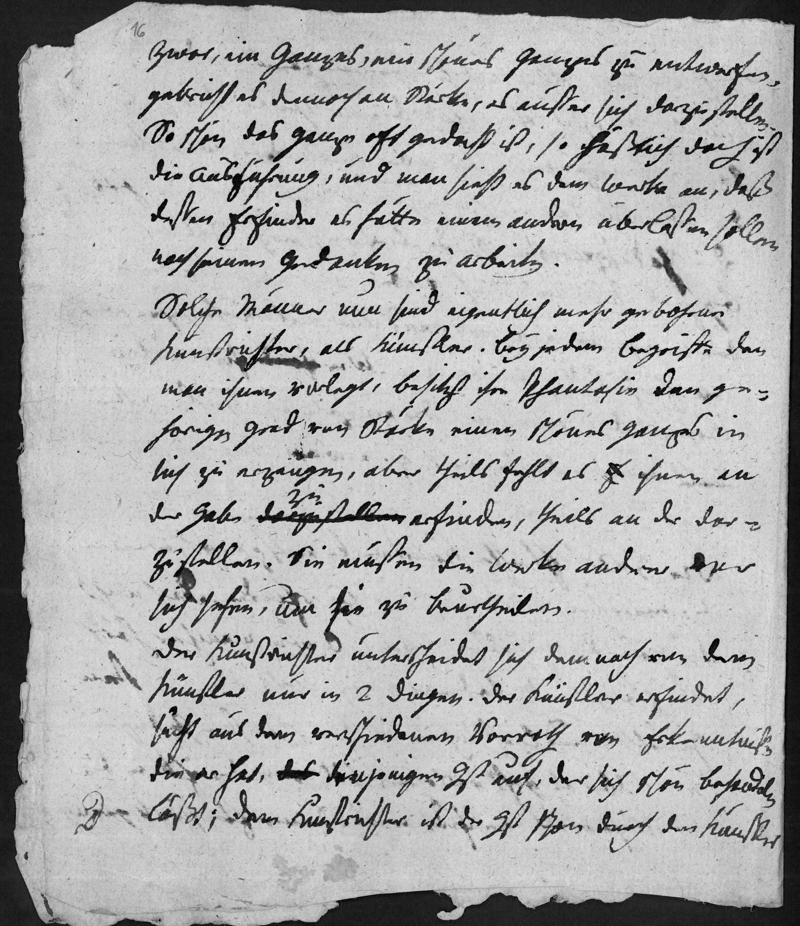 16
zwar, ein Ganzes, ein schönes Ganzes zu entwerfen,
gebricht es dennoch an Stärke, es außer sich darzustellen.
So schön das ganze oft gedacht ist, so häßlich doch ist
die Ausführung, und man sieht es dem Werke an, daß
dessen Erfinder es hätte einem andern überlassen sollen
nach seinen Gedanken zu arbeiten.
Solche Männer nun sind eigentlich mehr gebohrne
Kunstrichter, als Künstler. Bey jedem Begriffe den
man ihnen vorlegt, besitzt ihre Phantasie den ge-
hörigen Grad von Stärke einen schönes Ganzes in
sich zu erzeugen, aber theils fehlt es ihnen an
der Gabe darzustellen zu erfinden, theils an der dar-
zustellen. Sie müssen die Werke anderer vor
sich sehen, um sie zu beurtheilen.
Der Kunstrichter unterscheidet sich demnach von dem
Künstler nur in 2 Dingen. Der Künstler erfindet,
sucht aus dem verschiedenen Vorrath von Erkenntniß
die er hat, das denjenigen Gst auf, der sich schön behandeln
läßt; dem Kunstrichter ist der Gst schon durch den Künstler